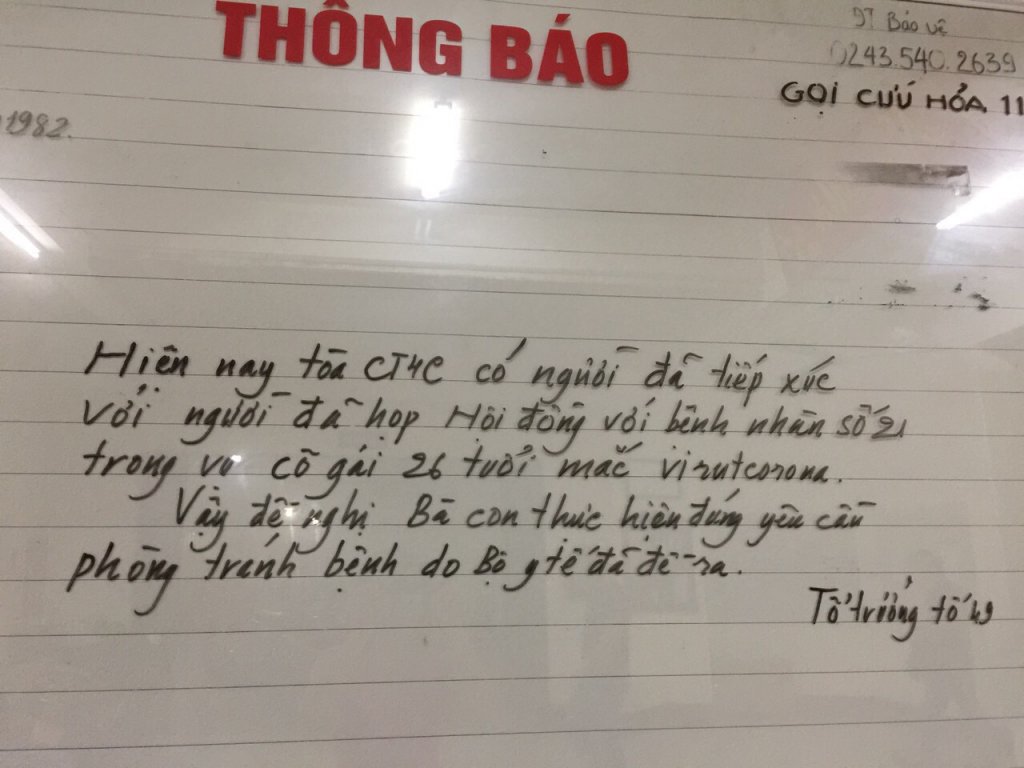 THÔNG BÁO
ĐT Bảo vệ
0243.540.2639
GỌI CỨU HỎA 11
1982.
Hiện nay tòa CT4C có người đã tiếp xúc
với người đã họp Hội đồng với bệnh nhân số 21
trong vụ cô gái 26 tuổi mắc virutcorona.
Vậy đề nghị Bà con thực hiện đúng yêu cầu
phòng tránh bệnh do Bộ y tế đã đề ra.
Tổ trưởng tổ 49